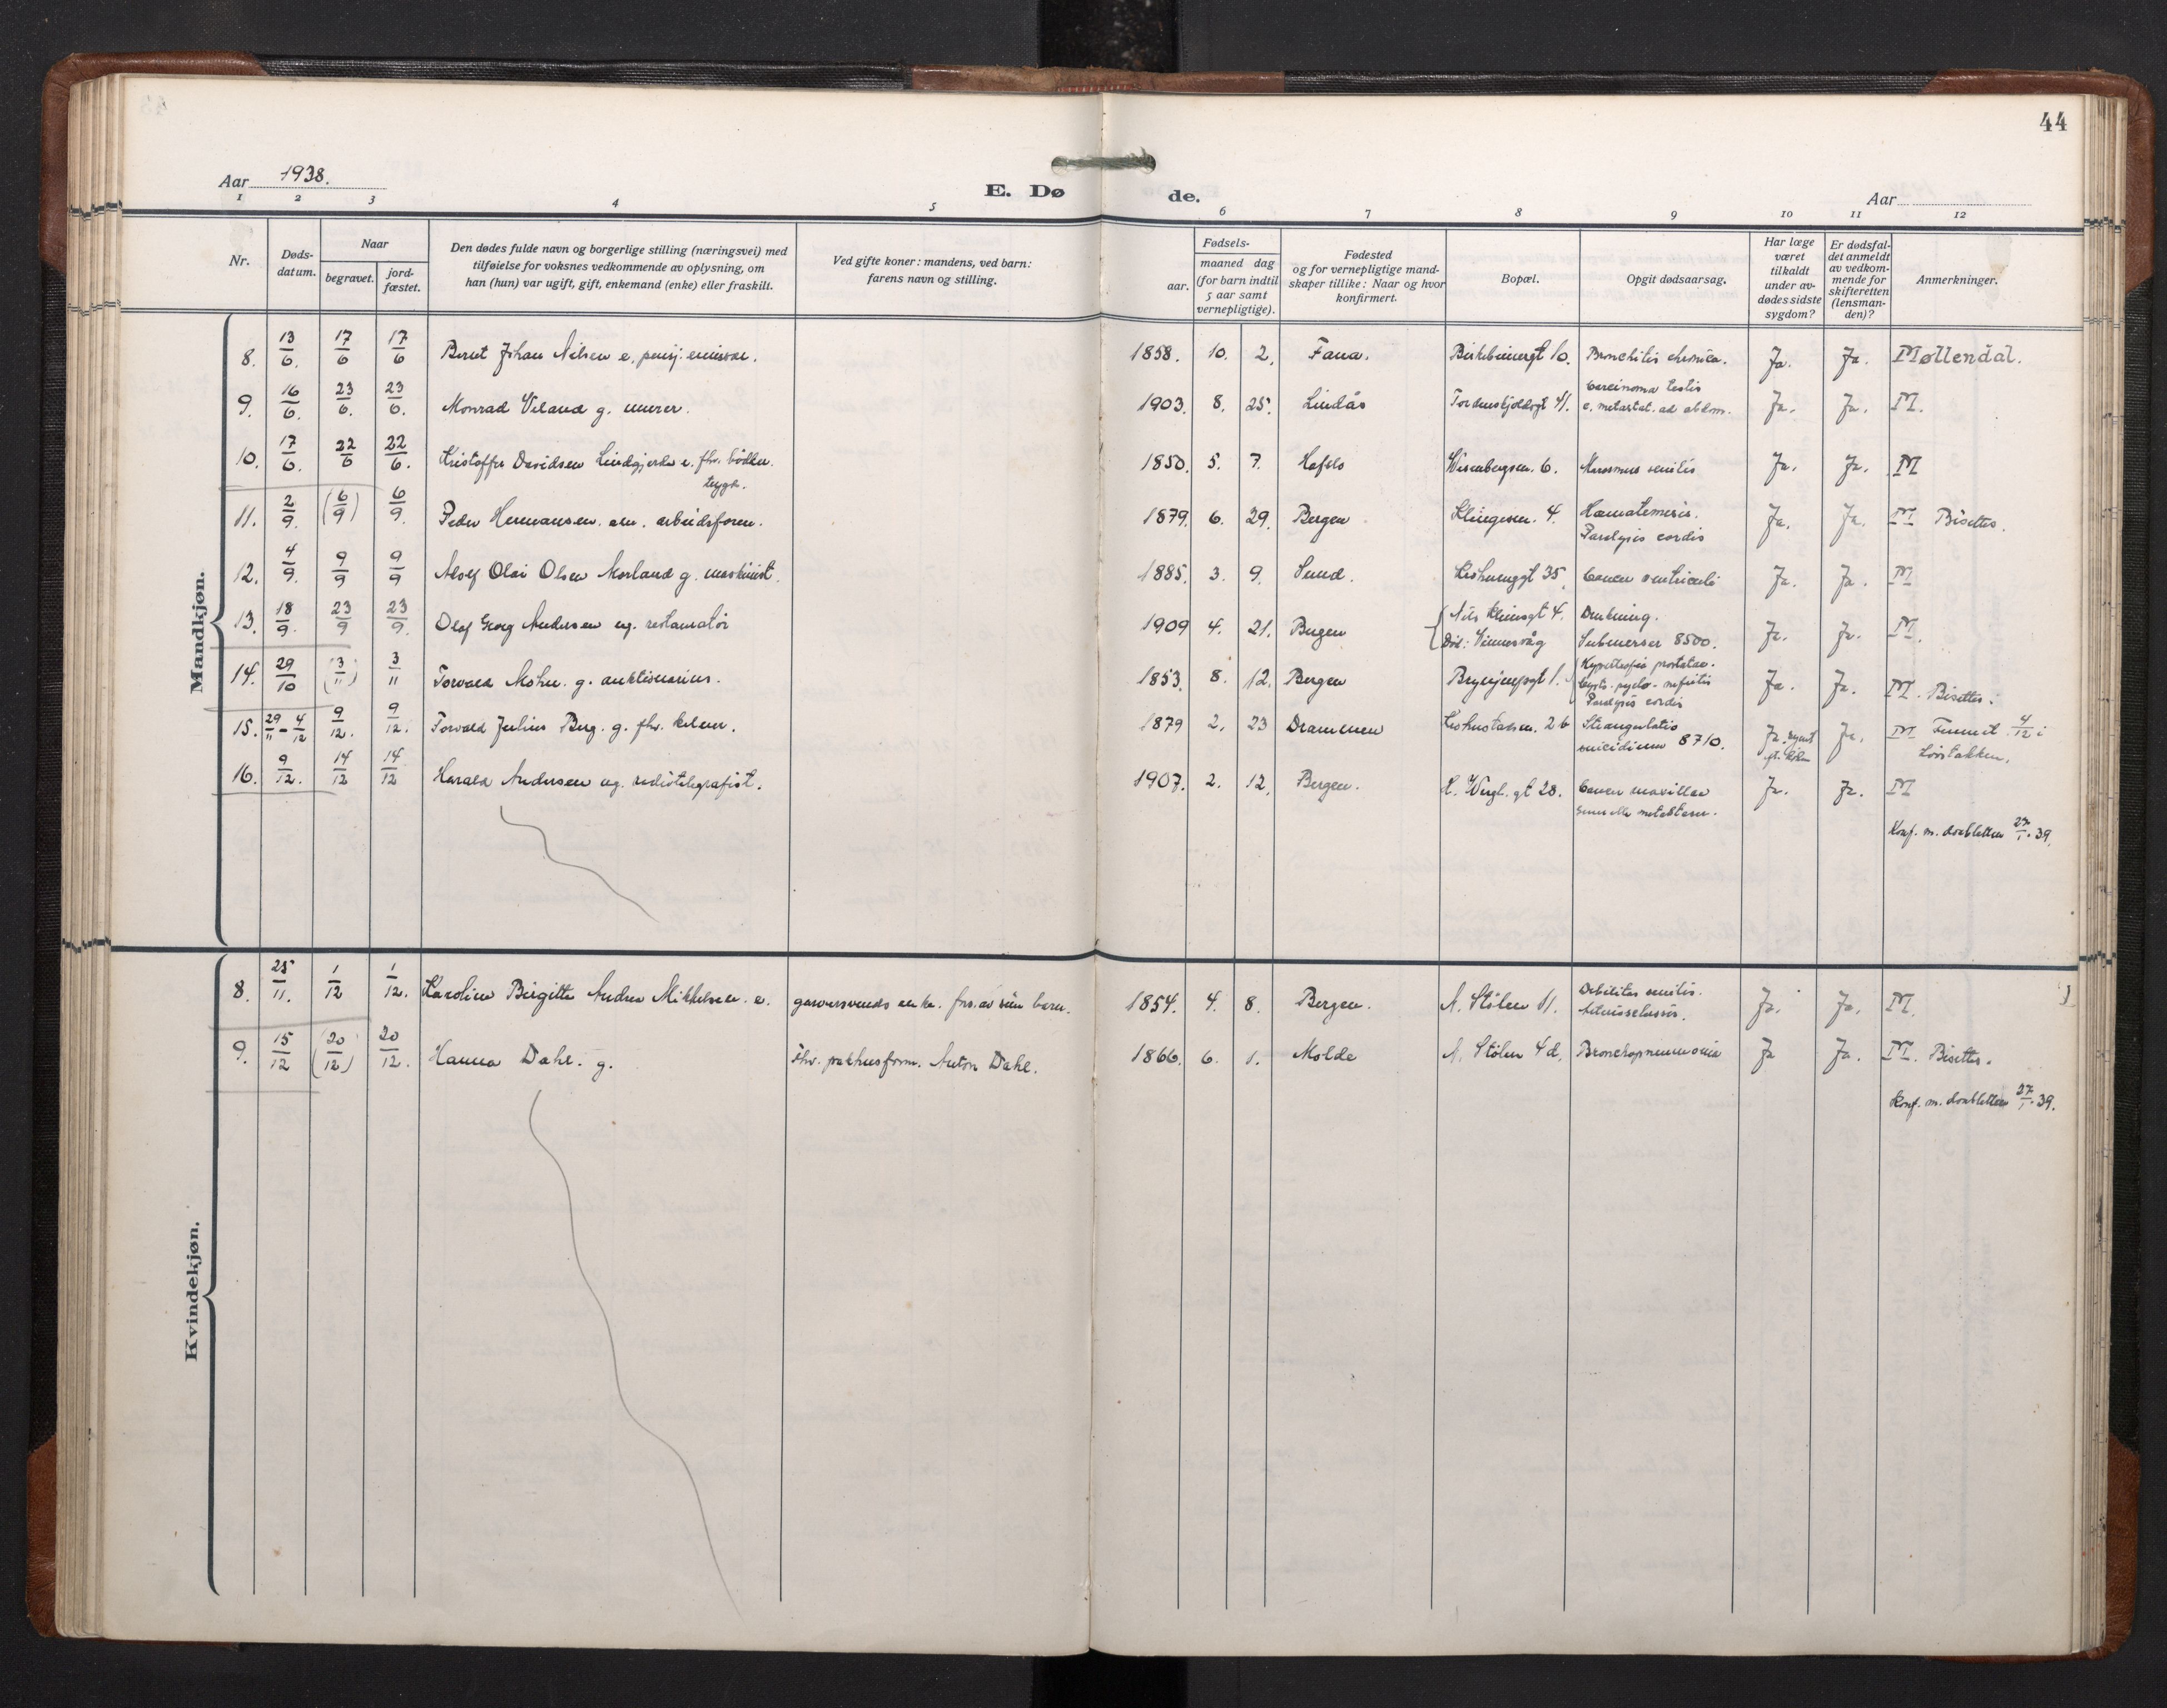 44
Aar 1938.
E. Dø de.
Aar
1 2 3 4 5 6 7 8 9 10 11 12
Nr.
Døds-
datum.
Naar
begravet.
jord-
fæstet.
Den dødes fulde navn og borgerlige stilling (næringsvei) med
tilføielse for voksnes vedkommende av oplysning, om
han (hun) var ugift, gift, enkemand (enke) eller fraskilt.
Ved gifte koner: mandens, ved barn:
farens navn og stilling.
Fødsels-
aar.
maaned dag
(for barn indtil
5 aar samt
vernepligtige).
Fødested
og for vernepligtige mand-
skaper tillike: Naar og hvor
konfirmert.
Bopæl.
Opgit dødsaarsag.
Har læge
været
tilkaldt
under av-
dødes sidste
sygdom?
Er dødsfal-
det anmeldt
av vedkom-
mende for
skifteretten
(lensman-
den)?
Anmerkninger.
Mandkjøn.
8. 13/6 17/6 17/6 Bernt Johan Nilsen e. pensj. 1858. 10. 2. Fana. Birkebeinergt 10. Bronchitis chronica. Ja. Ja. Møllendal.
9. 16/6. 23/6. 23/6. Monrad Veland g. murer. 1903. 8. 25. Lindås Tordenskjoldsgt 41. Carcinoma testis
c. metastat. ad abdom. Ja. Ja. M.
10. 17/6. 22/6 22/6. Kristoffer Davidsen e. fhv. bødker.
trygd. 1850. 5. 7. Hafslo Wesenbergsm. 6. Marasmus senilis Ja. Ja. M
11. 2/9. (6/9) 6/9. Peder Hermansen. arbeidsform. 1879. 6. 29. Bergen Klingesm. 4. Hæmatemesis.
Paralysis cordis Ja. Ja. M Bisettes.
12. 4/9. 9/9 9/9 Adolf Olai Olsen Morland g. maskinist. 1885. 3. 9. Sund. 35 Cancer ventriculi Ja. Ja. M
13. 18/9. 23/9 23/9. Olaf Georg Andersen ug. restauratør 1909 4. 21. Bergen Nils Klimsgt 4.
Død: Drukning.
Submersus 8500. Ja. Ja. M.
14. 29/10 (3/11) 3/11 Torvald Mohn. g. auktionarius. 1853. 8. 12. Bergen 1. Hypertrofia prostatae.
Cysto-pyelo-nefritis
Paralysis cordis Ja. Ja. M. Bisettes.
15. 29/11 - 4/12 9/12. 9/12. Torvald Julius Berg. g. fhv. kelner. 1879 2. 23 Drammen 26 Strangulatio
suicidium 8710. Ja. Ja. M Funnet 4/12 i
Løvstakken.
16. 9/12. 14/12 14/12 Harald Andersen ug. radiotelegrafist. 1907. 2. 12. Bergen. H. Wergl. gt 28. Cancer maxillae
metastaser. Ja. Ja. M
Konf. m. doubletten 27/1. 39.
Kvindekjøn.
8. 25/11. 1/12 1/12. Karoline Birgitte Andrea Mikkelsen. e. garversvends enke. fors. av sine barn. 1854. 4. 8. Bergen. N. Stølen 11. Debilitas senilis.
Ja. Ja. M.
9. 15/12 (20/12) 20/12. Hanna Dahl. g. fhv. pakhusform. Anton Dahl. 1866. 6. 1. Molde N. Stølen 4 d. Bronchopneumonia Ja Ja. M. Bisettes.
Konf. m. doubletten 27/1. 39.